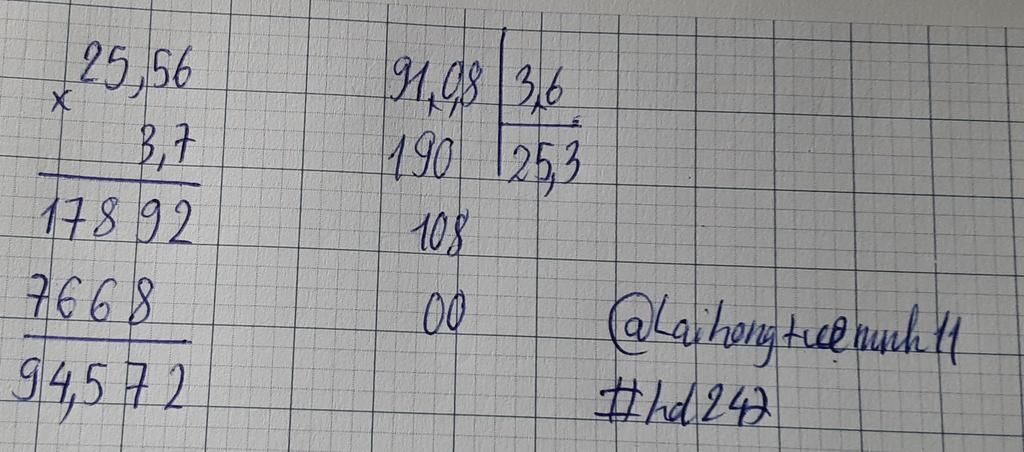 25,56
x
3,7
17892
7668
94,572
91,08 3,6
190 25,3
108
00
@Laihongtueminh11
#hd247